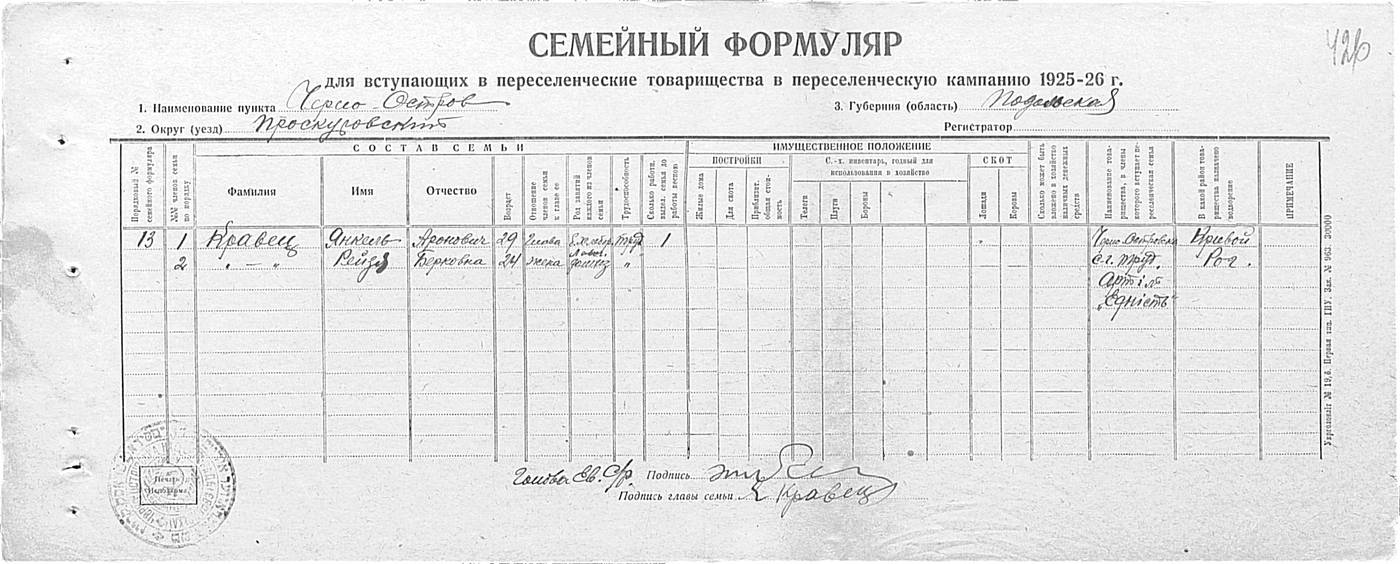 426
СЕМЕЙНЫЙ ФОРМУЛЯР
для вступающих в переселенческие товарищества в переселенческую кампанию 1925-26 г.
1. Наименование пункта Черно-Остров
3. Губерния (область) Подольская
2. Округ (уезд) Проскуровский
Регистратор
СОСТАВ СЕМЬИ
ИМУЩЕСТВЕННОЕ ПОЛОЖЕНИЕ
ПОСТРОЙКИ
С.-х. инвентарь, годный для использования в хозяйстве
СКОТ
Порядковый № семейного формуляра
№№ членов семьи по порядку
Фамилия
Имя
Отчество
Возраст
Отношение членов семьи к главе ее
Род занятий каждого из членов семьи
Трудоспособность
Сколько работн. выдел. семья до работы весною
Жилые дома
Для скота
Приблизит. общая стоимость
Телеги
Плуги
Бороны
Лошади
Коровы
Сколько может быть вложено в хозяйство наличных денежных средств
Наименование товарищества, в члены которого вступает переселенческая семья
В какой район товарищества назначено водворение
ПРИМЕЧАНИЕ
13 1 Кравец Янкель Аронович 29 Глава труд 1 Черно-Островск. Кривой
2 " — " Рейзя Берковна 24 жена " с.г. труд. Рог.
Артіль
„Єдність"
Печать
Подпись
Подпись главы семьи Я Кравец
Укрголовліт № 19,б. Первая тип. ГПУ. Зак. № 963 3000